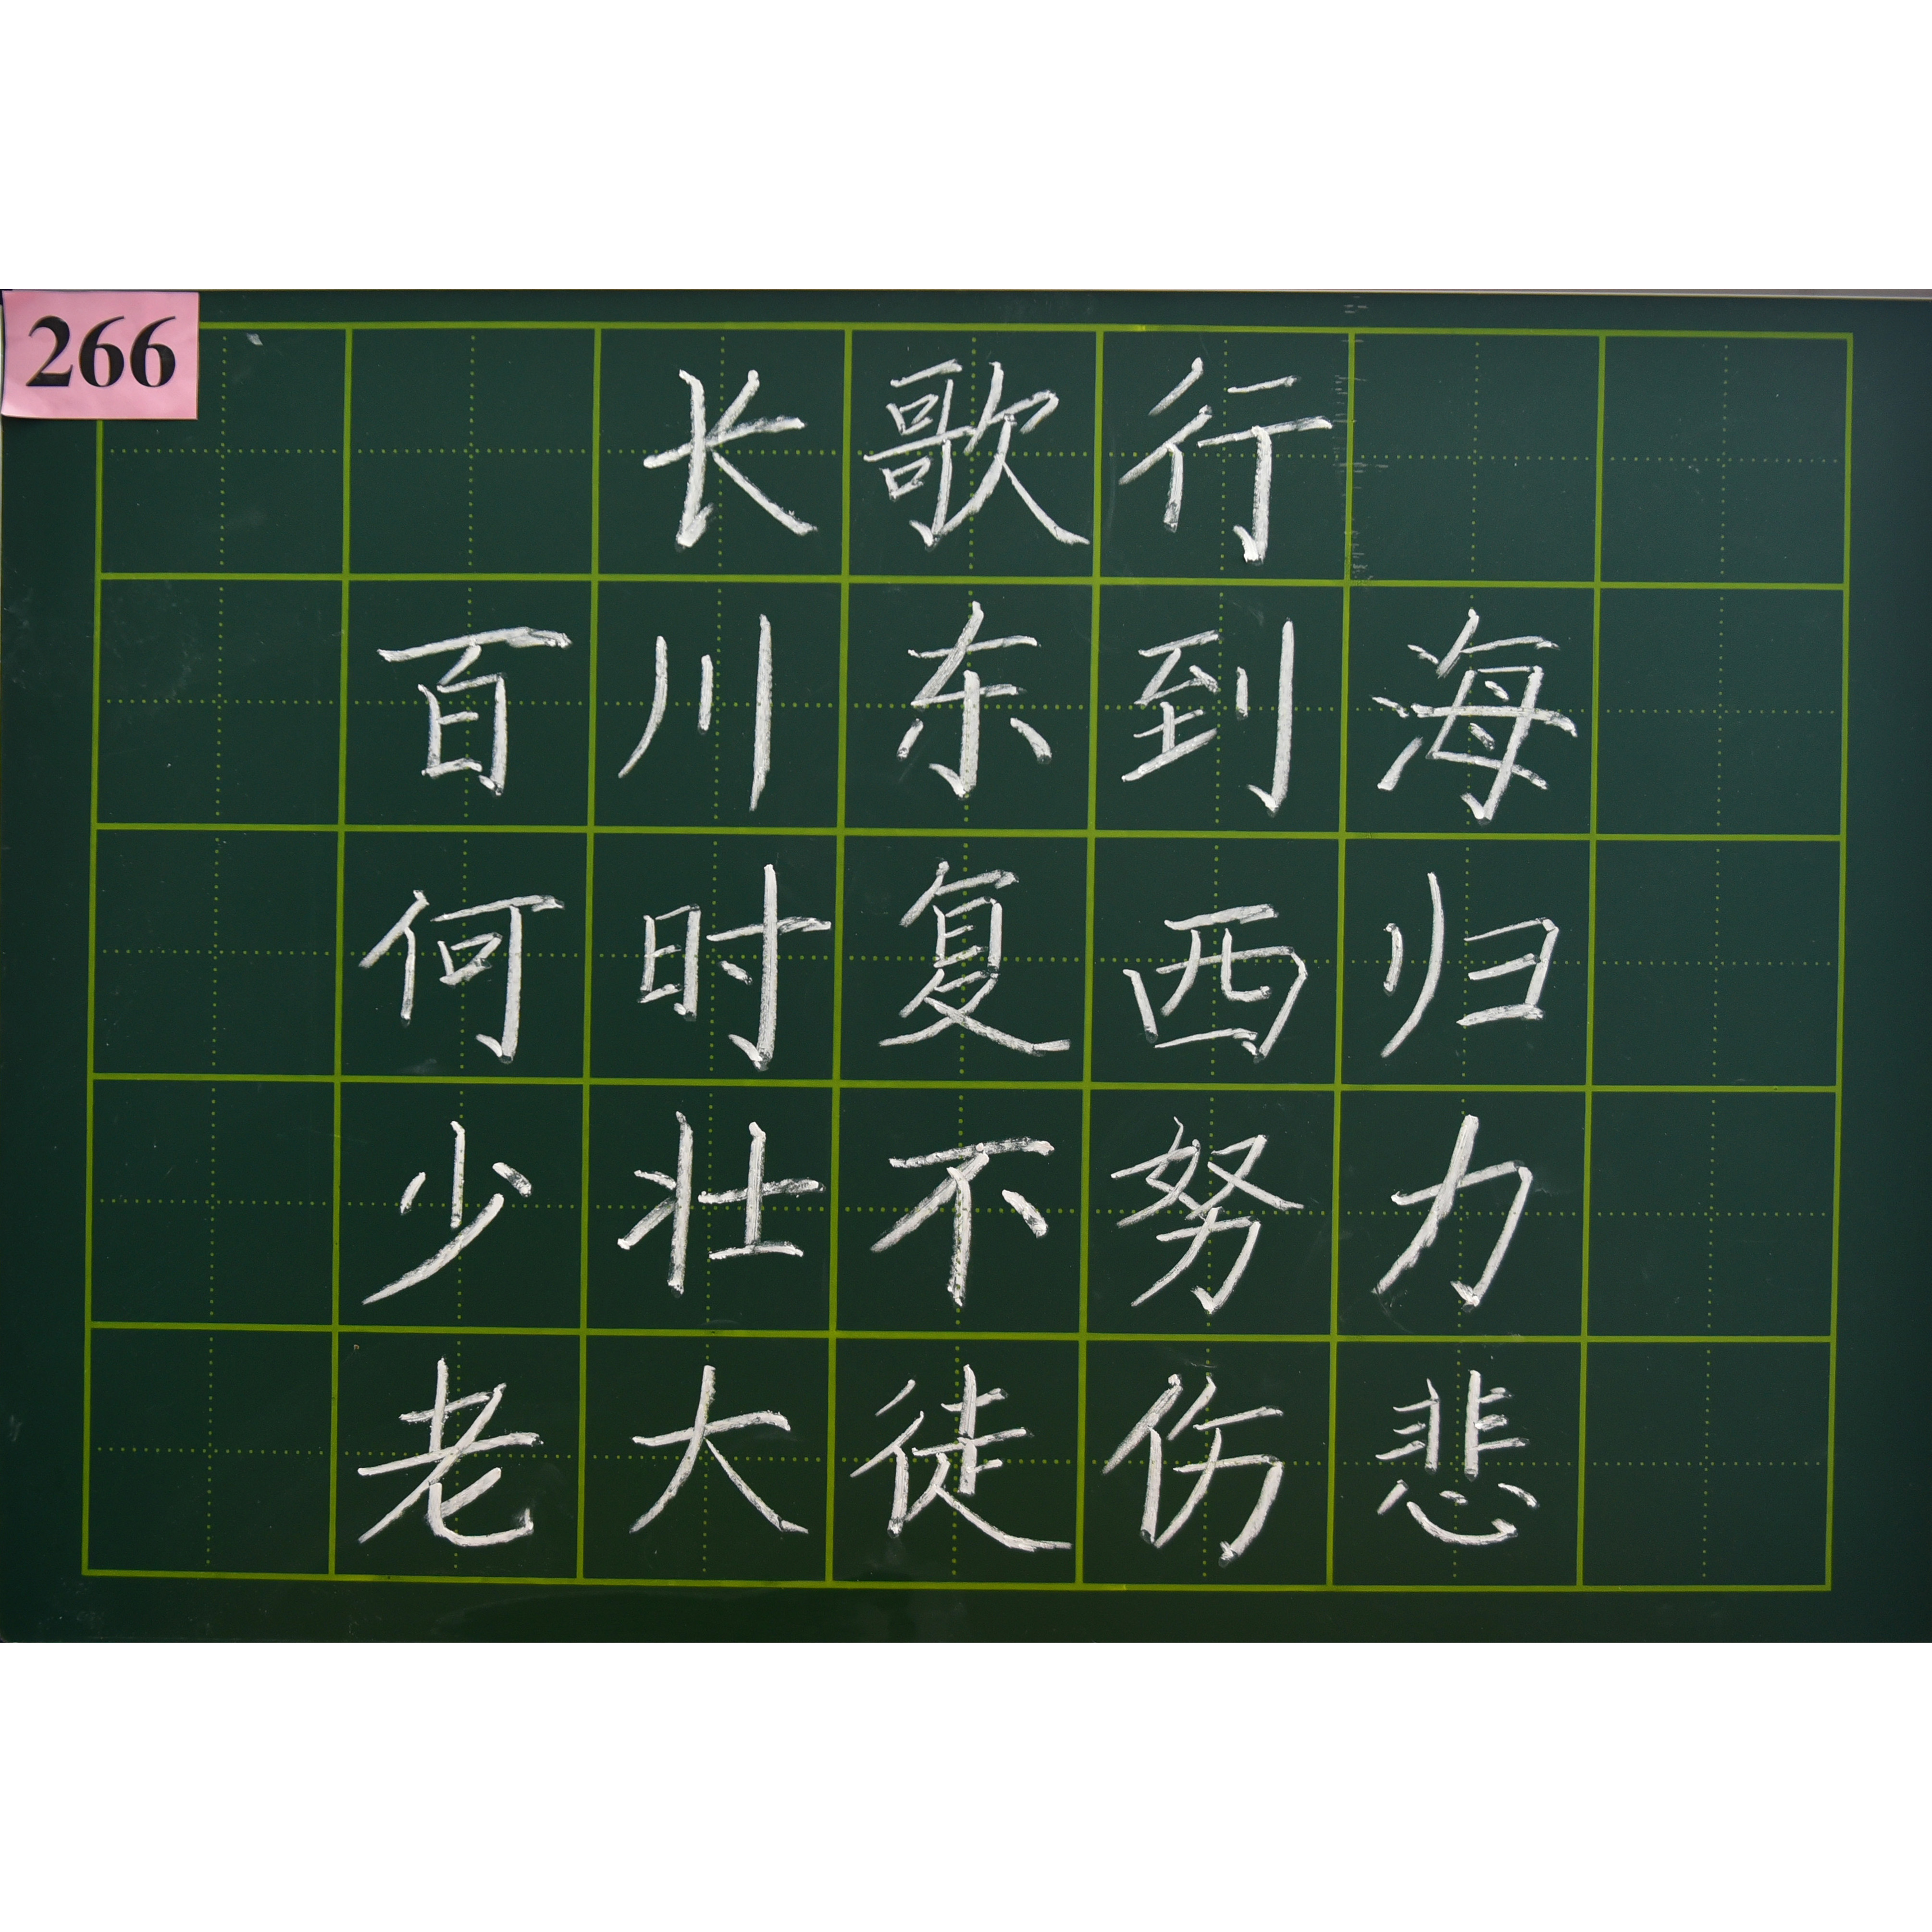 266
长歌行
百川东到海
何时复西归
少壮不努力
老大徒伤悲